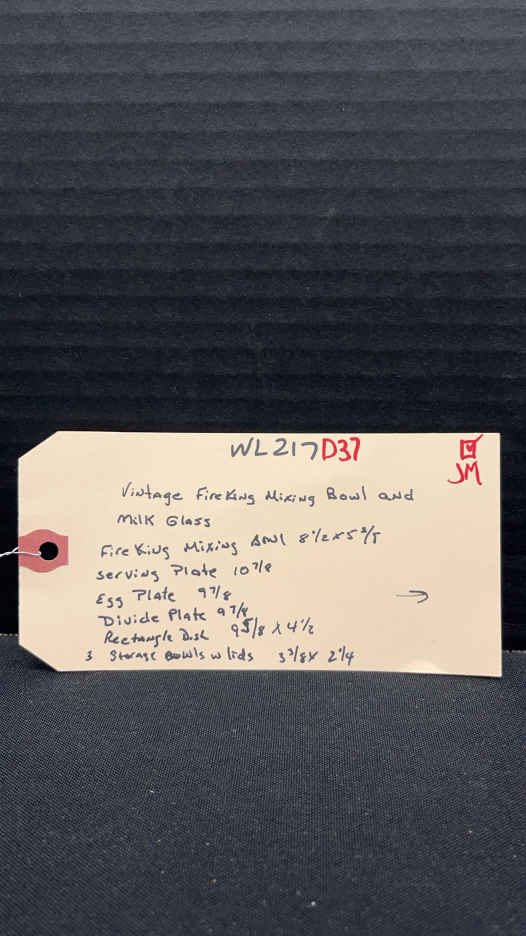 WL217D37
JM
Vintage FireKing Mixing Bowl and
Milk Glass
Fire King Mixing Bowl 8 1/2 x 5 3/5
Serving Plate 10 7/8
Egg Plate 9 7/8
Divide Plate 9 7/8
Rectangle Dish 9 5/8 X 4 1/2
3 Storage Bowls w lids 3 3/8 X 2 1/4